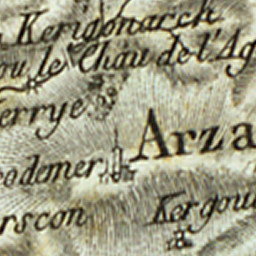 Kerigonarch
ou le Chau de l'Ag
erryé
Arza
odemer
rscon
Kergou